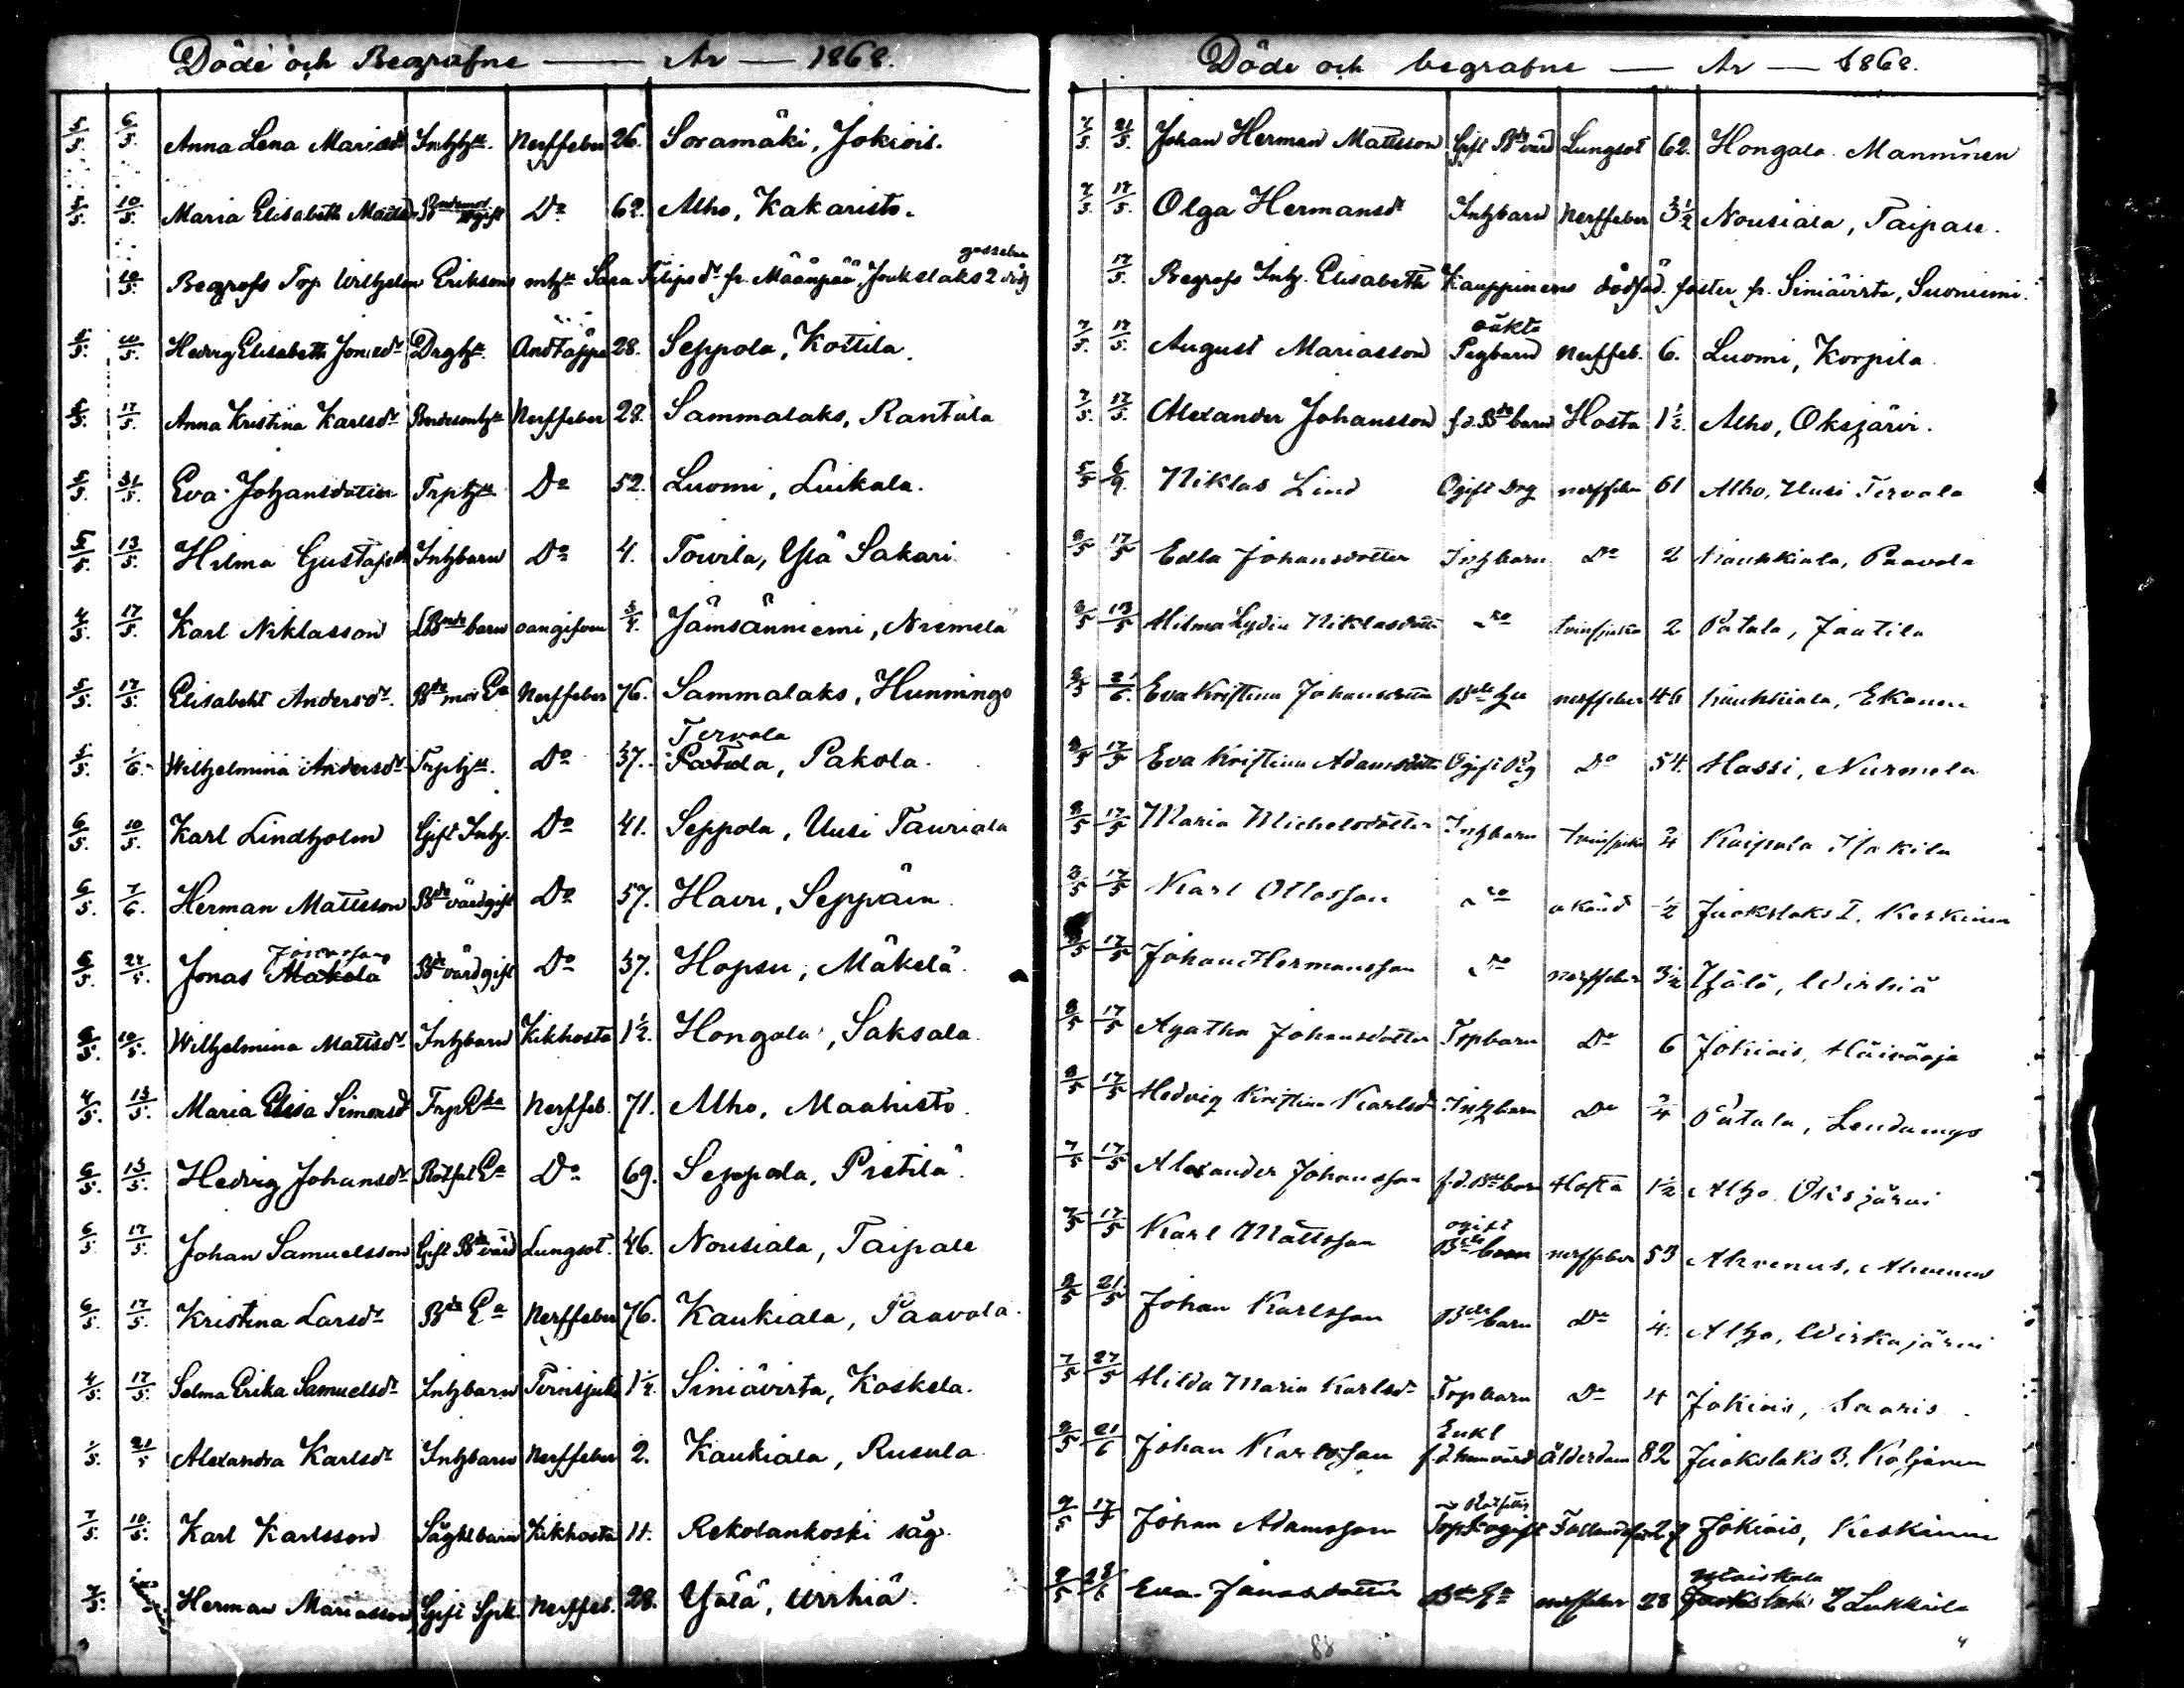 Döde och Begrafne — År — 1868.
5/5. 6/5. Anna Lena Mariasdr Inhhu. Nerffeber 26. Soramäki, Jokiois.
5/5. 10/5. Maria Elisabeth Mattsdr Do 62. Alho, Kakaristo.
gossebarn
10/5. Begrofs Trp Wilhelm Eriksons Sara Filipsdr fr. Määnpää, Joukslaks 2
5/5. 10/5. Hedvig Elisabeth Jonasdr Drghu. Andtäppa 28. Seppola, Kottila.
5/5. 17/5. Anna Kristina Karlsdr Bondesonhu Nerffeber 28. Sammalaks, Rantala
5/5. 31/5. Eva Johansdotter Trphu Do 52. Luomi, Luikala.
5/5. 13/5. Hilma Gustafsdr Inhbarn Do 4. Tovila, Ylä Sakari
4/5. 17/5. Karl Niklasson barn oangifven 3/4. Jämsänniemi, Niemelä
5/5. 17/5. Elisabeht Andersdr. Bdemor Ea Nerffeber 76. Sammalaks, Hunninge
Tervala
5/5. 1/6. Wilhelmina Andersdr Trphu. Do 37. Patala, Pakola.
6/5. 10/5. Karl Lindholm Gift Inh. Do 41. Seppola, Uusi Tauriala
6/5. 7/6. Herman Mattsson Bdevärdgift Do 57. Havu, Seppäin
Jonasson
6/5. 24/5. Jonas Makola Bdevärdgift Do 37. Hopsu, Mäkelä.
6/5. 10/5. Wilhelmina Mattsdr Inhbarn Kikhosta 1½. Hongola, Saksala.
4/5. 13/5. Maria Elisa Simonsd Trp Eka Nerffeb. 71. Alho, Maahisto.
6/5. 13/5. Hedvig Johansdr Rotfat Ea Do 69. Seppola, Pietilä.
6/5. 17/5. Johan Samuelsson Gift Bdevärd Lungsot. 46. Nousiala, Taipale
6/5. 17/5. Kristina Larsdr Bde Ea Nerffeber 76. Kaukiala, Paavola.
4/5. 17/5. Selma Erika Samuelsdr Inhbarn Tvinsjuka 1½. Siniävirta, Koskela.
1/5. 21/5 Alexandra Karlsdr Inhbarn Nerffeber 2. Kaukiala, Rusula
7/5. 10/5. Karl Karlsson barn Kikhosta 11. Rekolankoski såg
7/5. Herman Mariasson Gift Spk. Nerffeb. 28. Yälä, Urrhiä.
Döde och begrafne — År — 1868.
7/5. 21/5. Johan Herman Mattsson Gift Bdevärd Lungsot 62. Hongola Manninen
7/5. 17/5. Olga Hermansdr Inhbarn Nerffeber 3½ Nousiala, Taipale.
17/5. Begrofs Inh. Elisabeth Kauppinens dödföd. foster fr. Siniävirta, Suoniemi.
oäkta
7/5. 17/5. August Mariasson Pegbarn Nerffeb. 6. Luomi, Korpila
7/5. 17/5. Alexander Johansson f.d. Bdebarn Hosta 1½. Alho, Oksjärvi.
5/5 6/9. Niklas Lind Ogift Drg nerffeber 61 Alho, Uusi Tervala
8/5 17/5 Edla Johansdotter Inhbarn Do 2 Kauhkiala, Paavola
8/5 13/5 Hilma Lydia Niklasdotter Do tvinsjuka 2 Patala, Jaatila
8/5 21/6. Eva Kristina Johansdotter Bde hu nerffeber 46 Kauhkiala, Ekonen
8/5 17/5 Eva Kristina Adamsdotter Ogift Pig Do 54. Hassi, Nurmela
8/5 17/5 Maria Michelsdotter Inhbarn tvinsjuka 3/4 Kaipola Iso Kila
8/5 17/5 Karl Ottosson Do okänd ½ Juokslaks I. Keskinen
8/5 17/5 Johan Hermansson Do nerffeber 3½ Yälä, Wirhiä
8/5 17/5 Agatha Johansdotter Torpbarn Do 6 Jokiois, Häiväoja
8/5 17/5 Hedvig Kristina Karlsdr Inhbarn Do 3/4 Patala, Lendamys
7/5 17/5 Alexander Johansson f.d. Bdebarn Hosta 1½ Alho Oksjärvi
ogift
7/5 17/5 Karl Mattsson Bde nerffeber 53 Ahvenus, Ahvenus
8/5 21/5 Johan Karlsson Bdebarn Do 4. Alho, Wirkajärvi
7/5 27/5 Hilda Maria Karlsdr Torpbarn Do 4 Jokiois, Saaris.
Enkl
9/5 21/6 Johan Karlsson f.d. hemvärd Ålderdom 82 Juokslaks 3. Koljonen
9/5 17/5 Johan Adamsson ogift 27 Jokiois, Keskinen
9/5 28/6 Eva Jonasdotter nerffeber 28 Juokslaks 2 Lukkila
88